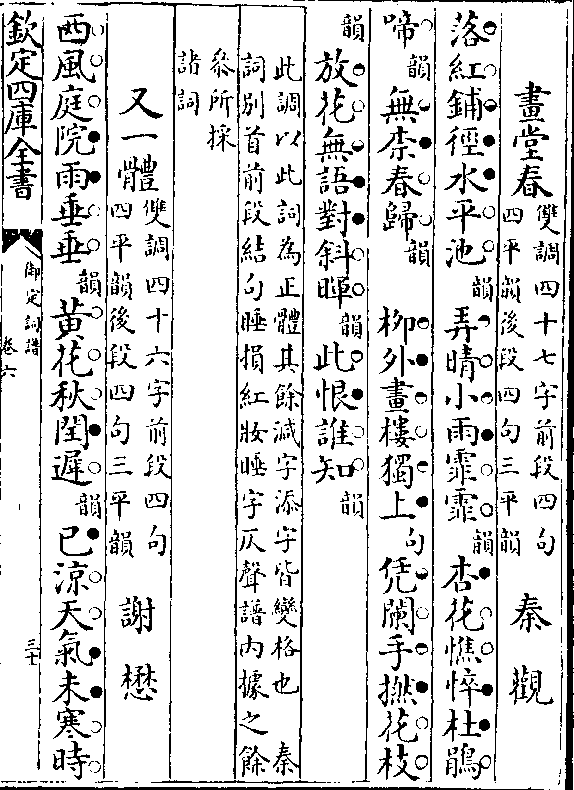 畫堂春 雙調四十七字前段四句
四平韻後段四句三平韻 秦觀
落紅鋪徑水平池韻弄晴小雨霏霏韻杏花憔悴杜鵑
啼韻無柰春歸韻 柳外畫樓獨上句凭闌手撚花枝
韻放花無語對斜暉韻此恨誰知韻
此調以此詞為正體其餘減字添字皆變格也 秦
詞別首前段結句睡損紅妝睡字仄聲譜內據之餘
叅所採
諸詞
又一體 雙調四十六字前段四句
四平韻後段四句三平韻 謝懋
西風庭院雨垂垂韻黃花秋閏遲韻已涼天氣未寒時
欽定四庫全書
御定詞譜
卷六
三十